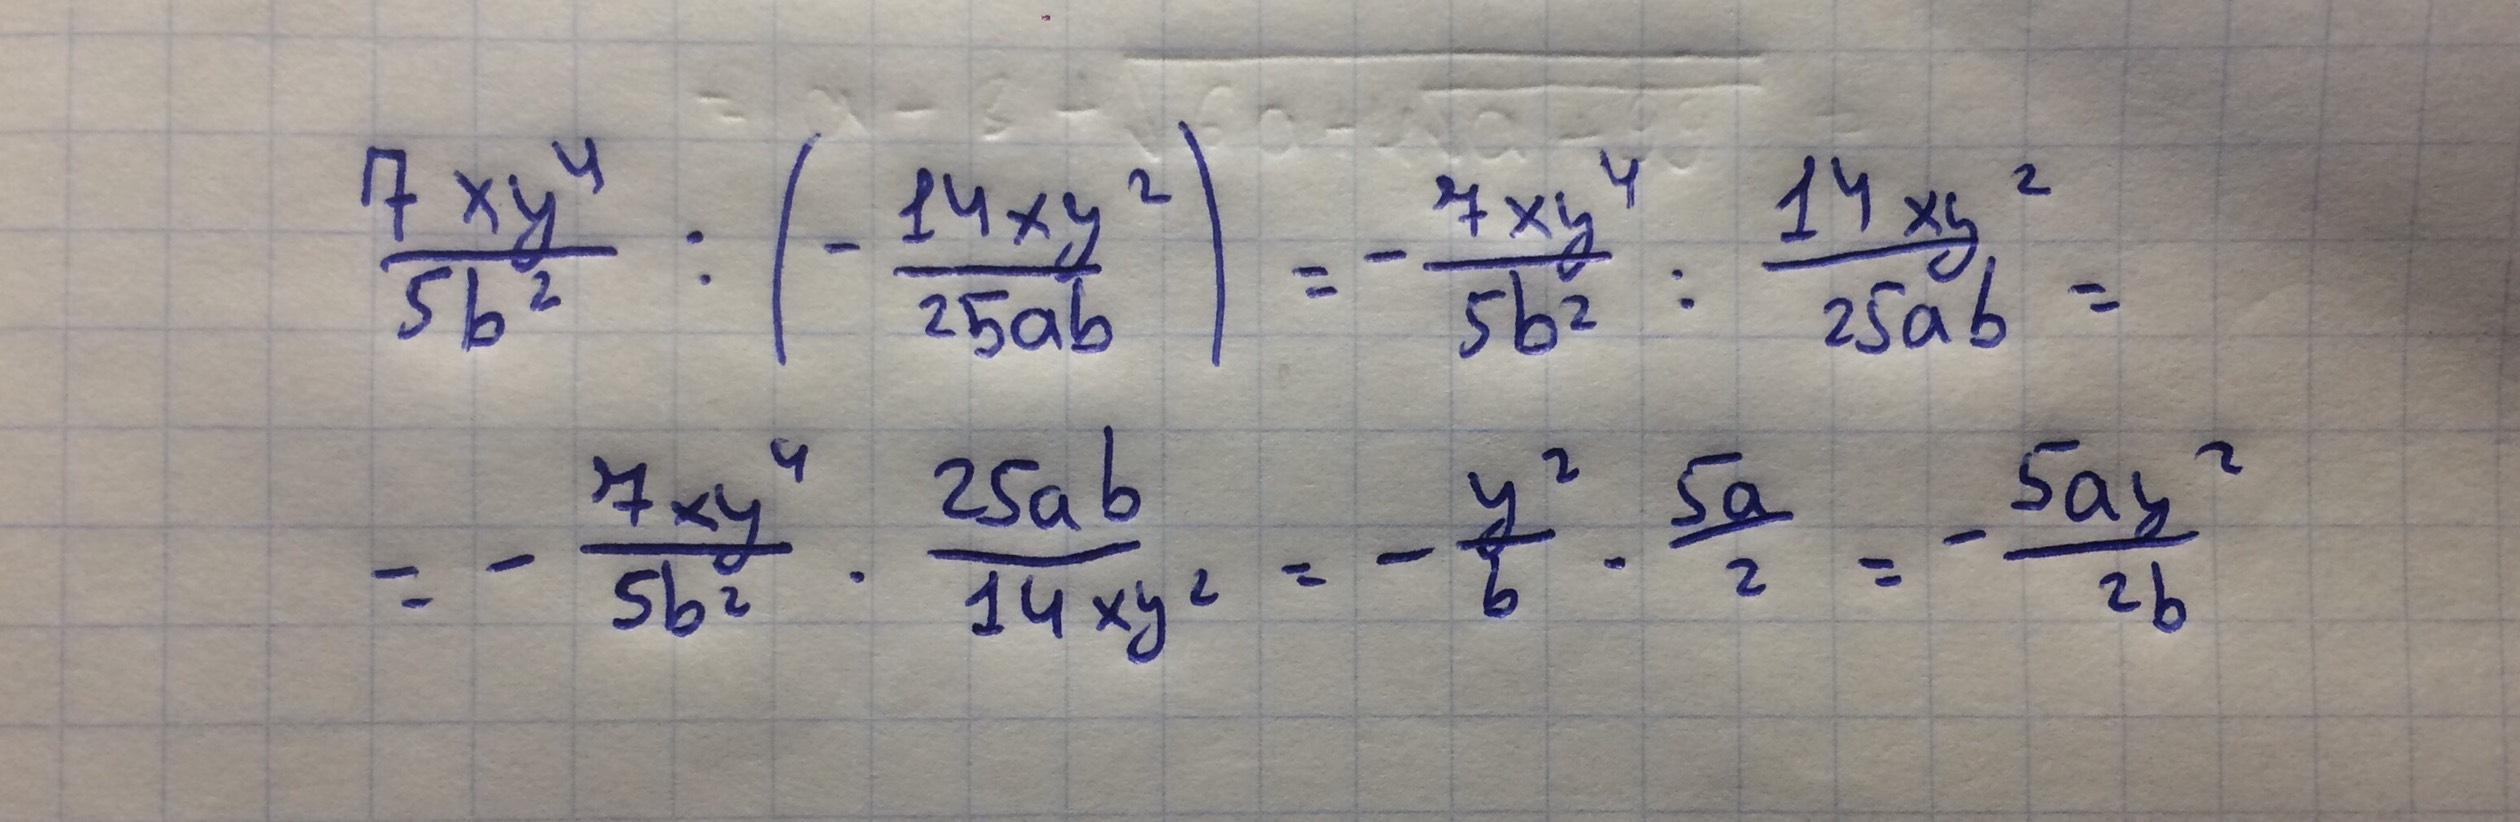 7xy⁴/5b² : (- 14xy²/25ab) = - 7xy⁴/5b² : 14xy²/25ab =
= - 7xy⁴/5b² · 25ab/14xy² = - y²/b · 5a/2 = - 5ay²/2b